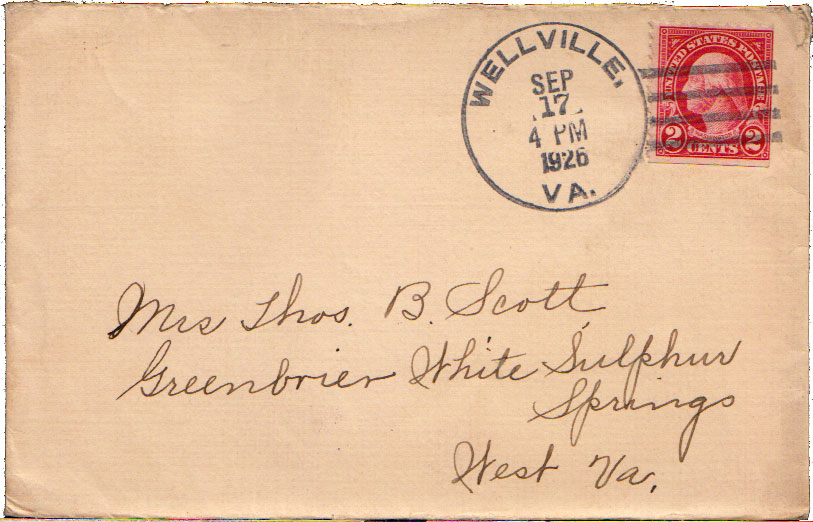 WELLVILLE,
SEP
17
4 PM
1926
VA.
UNITED STATES POSTAGE
2 CENTS 2
Mrs Thos. B. Scott
Greenbrier White Sulphur
Springs
West Va.